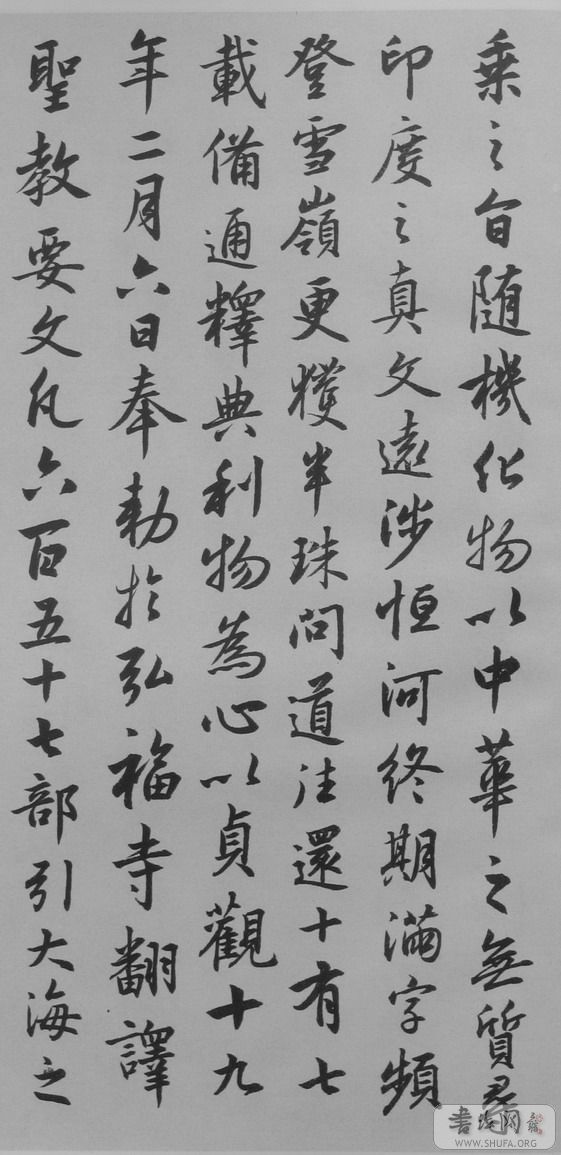 乗之旨随機化物以中華之無質尋
印度之真文遠涉恒河終期滿字頻
登雪嶺更獲半珠問道往還十有七
載備通釋典利物為心以貞觀十九
年二月六日奉勅於弘福寺翻譯
聖教要文凡六百五十七部引大海之
書法网
WWW.SHUFA.ORG